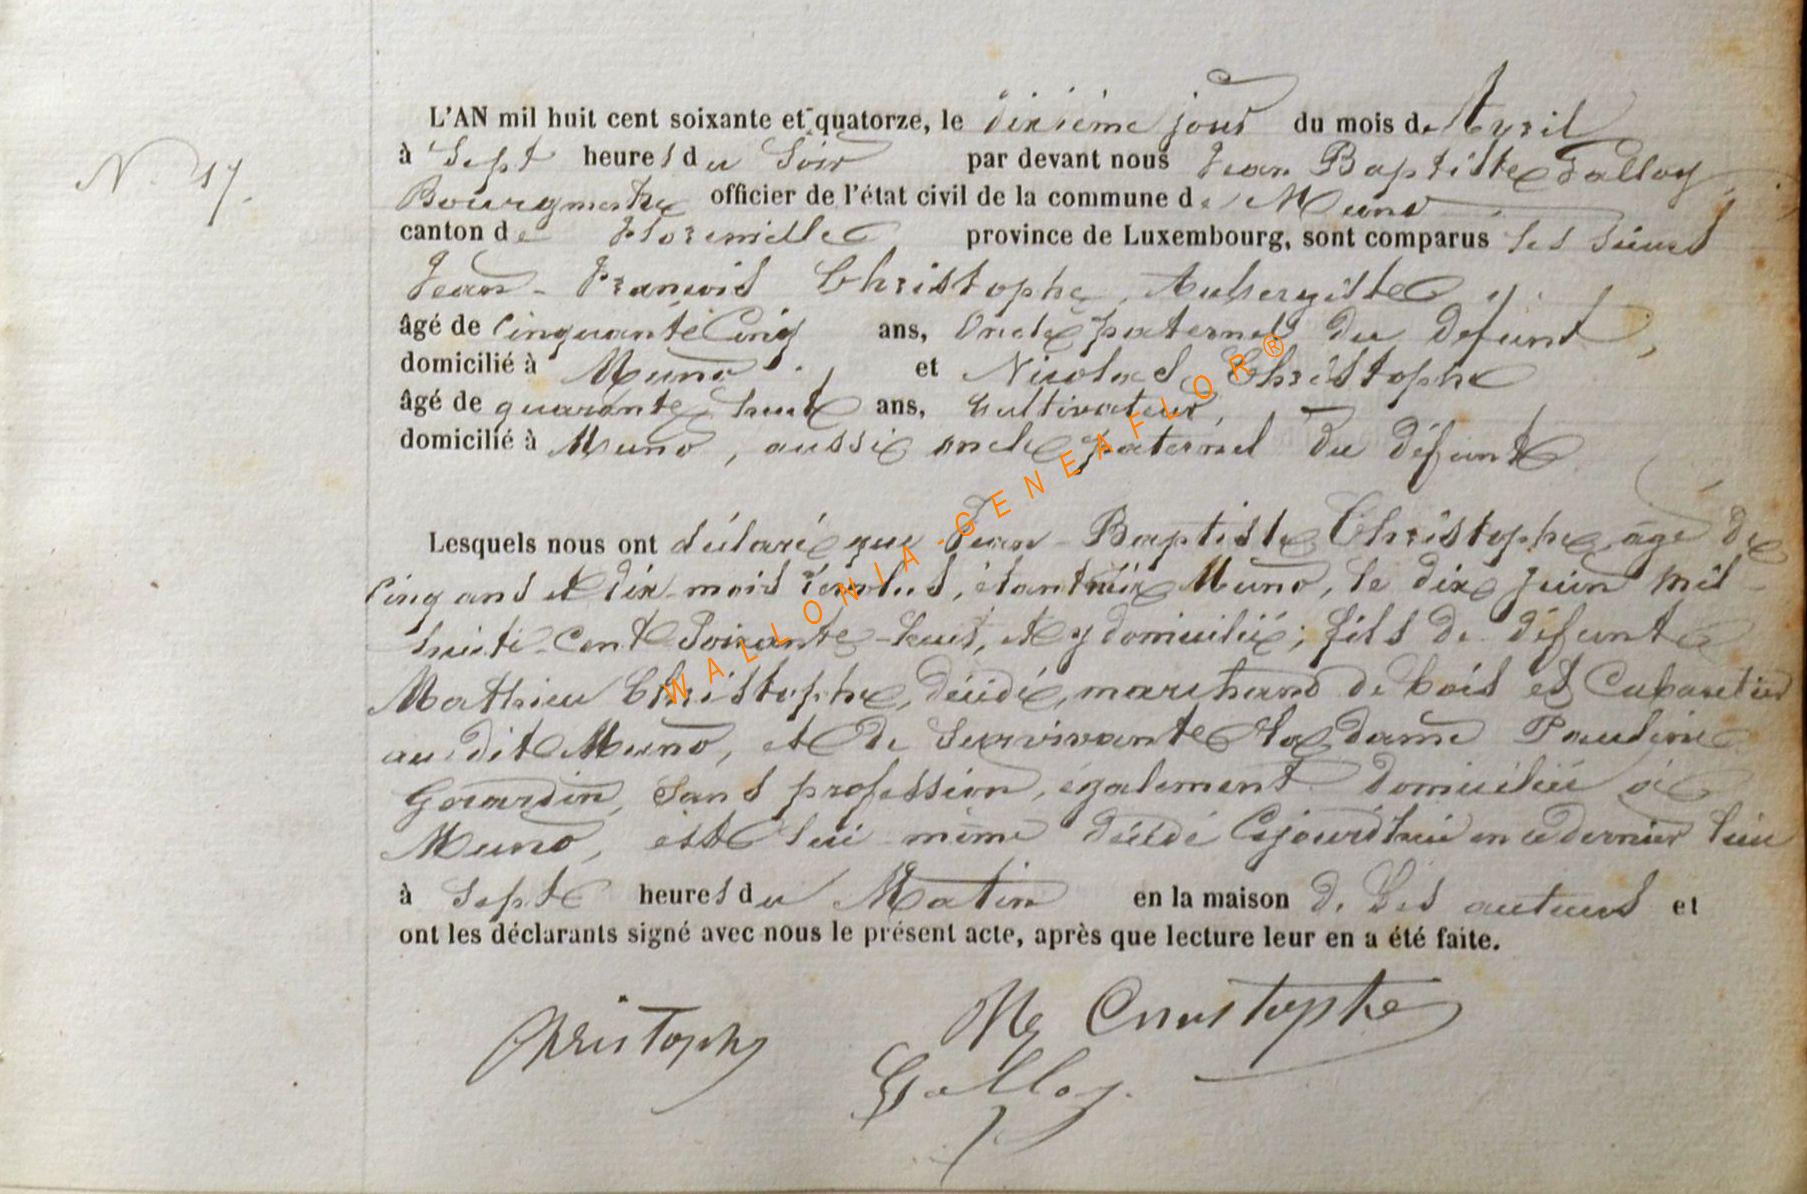 N° 17.
L'AN mil huit cent soixante et quatorze, le dixième jour du mois de Avril
à Sept heures du Soir par devant nous Jean Baptiste Galloy
Bourgmestre officier de l'état civil de la commune de Muno
canton de Florenville province de Luxembourg, sont comparus les sieurs
Jean-François Christophe, Aubergiste
âgé de Cinquante Cinq ans, Oncle paternel du défunt,
domicilié à Muno. et Nicolas Christophe
âgé de quarante huit ans, Cultivateur,
domicilié à Muno, aussi oncle paternel du défunt
Lesquels nous ont déclaré que Jean-Baptiste Christophe, âgé de
Cinq ans et dix mois révolus, étant né à Muno, le dix Juin mil
huit-Cent Soixante-huit, et y domicilié; fils de défunt
Mathieu Christophe, décédé, marchand de bois et Cabaretier
au dit Muno, et de survivante la dame Pauline
Gérardin, sans profession, également domiciliée à
Muno, est lui-même décédé Cejourd'hui en ce dernier lieu
à Sept heures du Matin en la maison de Ses auteurs et
ont les déclarants signé avec nous le présent acte, après que lecture leur en a été faite.
Christophe
Christophe
Galloy.
WALLONIA-GENEAFLOR®